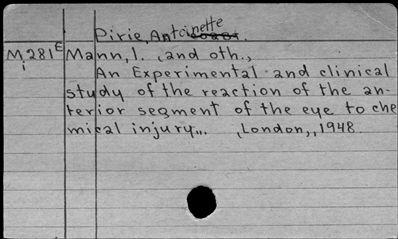 Pirie, Antoinette.
M.281E Mann, I. (and oth.,
i An Experimental and clinical
study of the reaction of the an-
terior segment of the eye to che
mical injury... (London,, 1948.